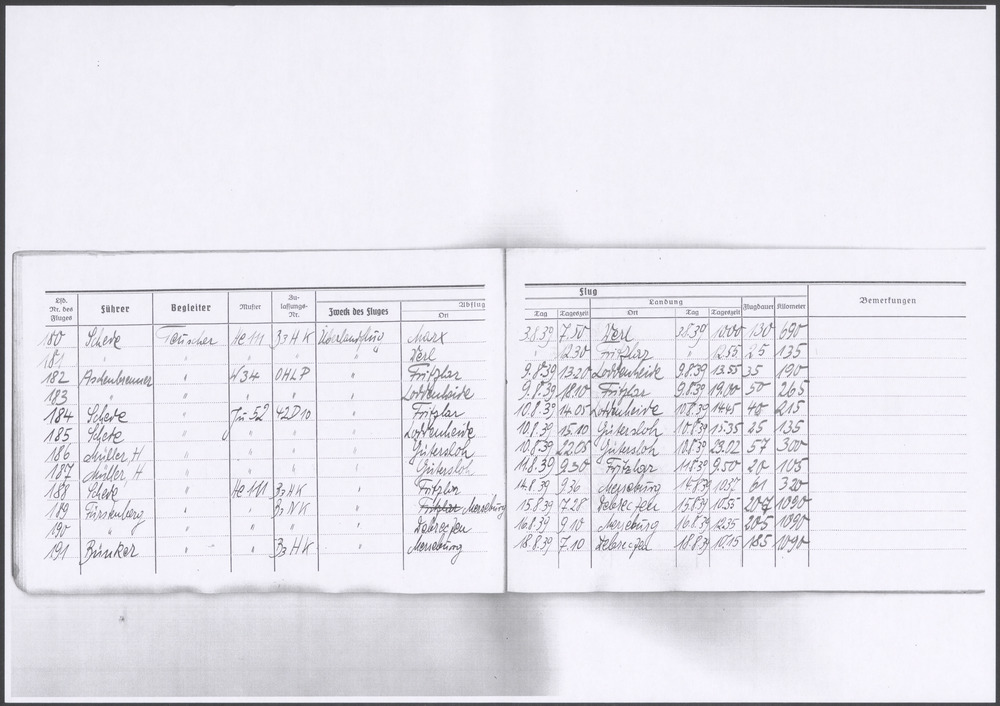 Lfd. Nr. des Fluges Führer Begleiter Muster Zulassungs-Nr. Zweck des Fluges Abflug Ort
Flug
Tag Tageszeit Landung Ort Tag Tageszeit Flugdauer Kilometer Bemerkungen
180 Scheve Teuscher He 111 B3HK Überlandflug Marx 3.8.39 7.50 Verl 3.8.39 10.00 130 690
181 " " " " " Verl " 12.30 Fritzlar " 12.55 25 135
182 Aschenbrenner " W34 OHLP " Fritzlar 9.8.39 13.20 Loddenheide 9.8.39 13.55 35 190
183 " " " " " Loddenheide 9.8.39 18.10 Fritzlar 9.8.39 19.00 50 265
184 Scheve " Ju 52 42D10 " Fritzlar 10.8.39 14.05 Loddenheide 10.8.39 14.45 40 215
185 Scheve " " " " Loddenheide 10.8.39 15.10 Gütersloh 10.8.39 15.35 25 135
186 Müller, H " " " " Gütersloh 10.8.39 22.05 Gütersloh 10.8.39 23.02 57 300
187 Müller, H " " " " Gütersloh 11.8.39 9.30 Fritzlar 11.8.39 9.50 20 105
188 Scheve " He 111 B3HK " Fritzlar 14.8.39 9.36 Merseburg 14.8.39 10.37 61 320
189 Fürstenberg " " B3NK " Fritzlar Merseburg 15.8.39 7.28 Debreczen 15.8.39 10.55 207 1090
190 " " " " " Debreczen 16.8.39 9.10 Merseburg 16.8.39 12.35 205 1090
191 Bunker " " B3HK " Merseburg 18.8.39 7.10 Debreczen 18.8.39 10.15 185 1090